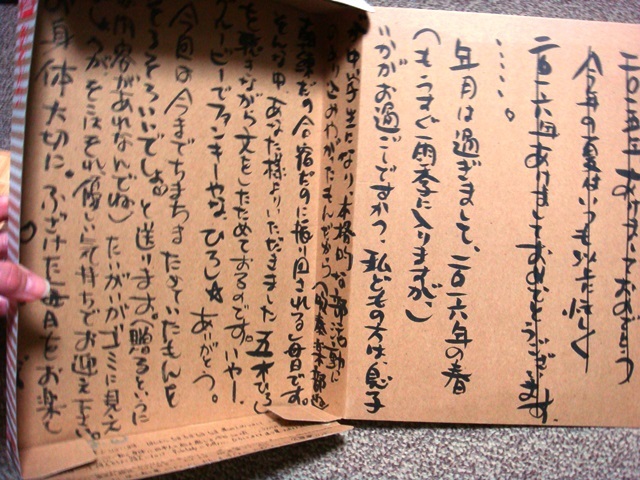 二〇一五年 あけましておめでとう
今年の夏はいつも以上に忙しく
二〇一六年あけましておめでとうございます
……。
年月は過ぎまして、二〇一六年の春
(もうすぐ雨季に入りますが。)
いかがお過ごしですかっ 私どもの方は、息子
が中学生になり、本格的な部活動に
のめりがたもんだから(吹奏楽部也)
だの合宿だのに振り回される毎日です。
そんな中、あなた様よりいただきました五木ひろし
を聴きながら文をしたためておるのです。いやー、
グルービーでファンキーやな、ひろし☆ ありがとう。
今回は今までちまちまためていたもんを
そろそろいいでしょと送ります。(贈るというに
は内容があれなんでね) たいがいがゴミに見えて
しょうが、そこはそれ、優しい気持ちでお迎え下さい。
お身体大切に。ふざけた毎日をお楽し